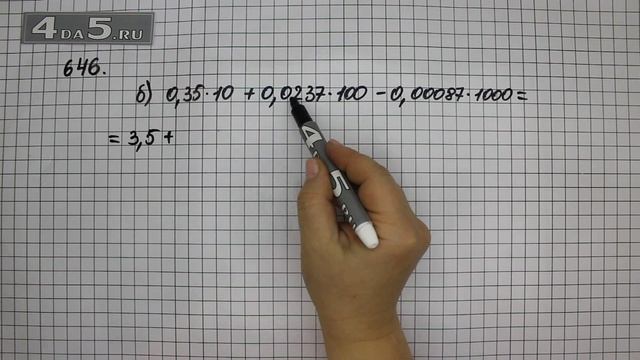 4DA5.RU
646.
б) 0,35·10 + 0,0237·100 - 0,00087·1000 =
= 3,5 +
4
5